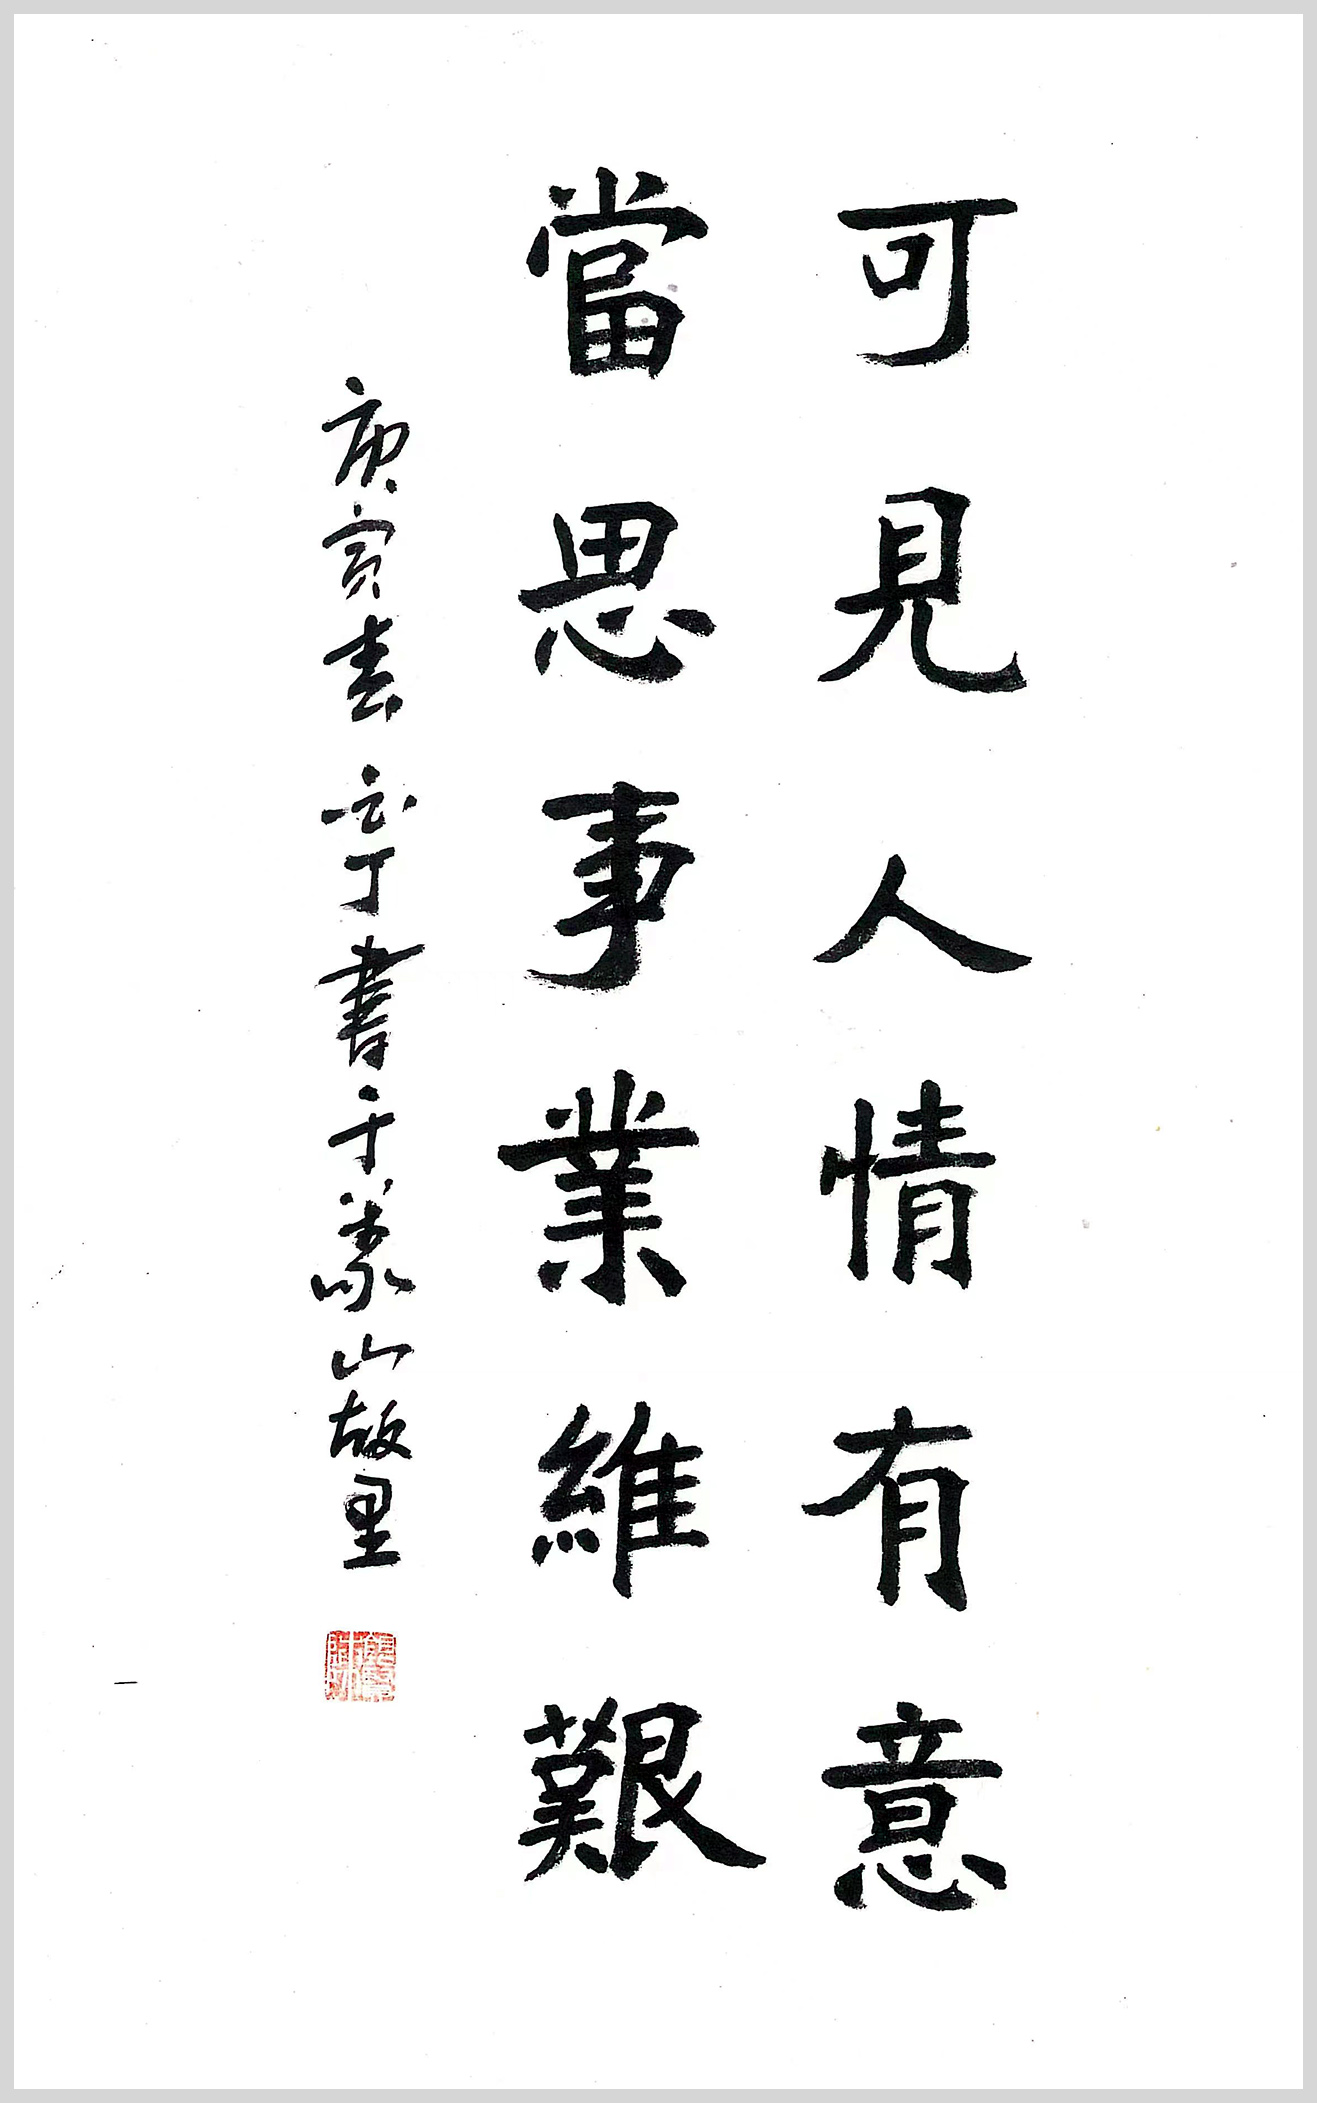 可見人情有意
當思事業維艱
庚寅春 玄丁書于蒙山故里